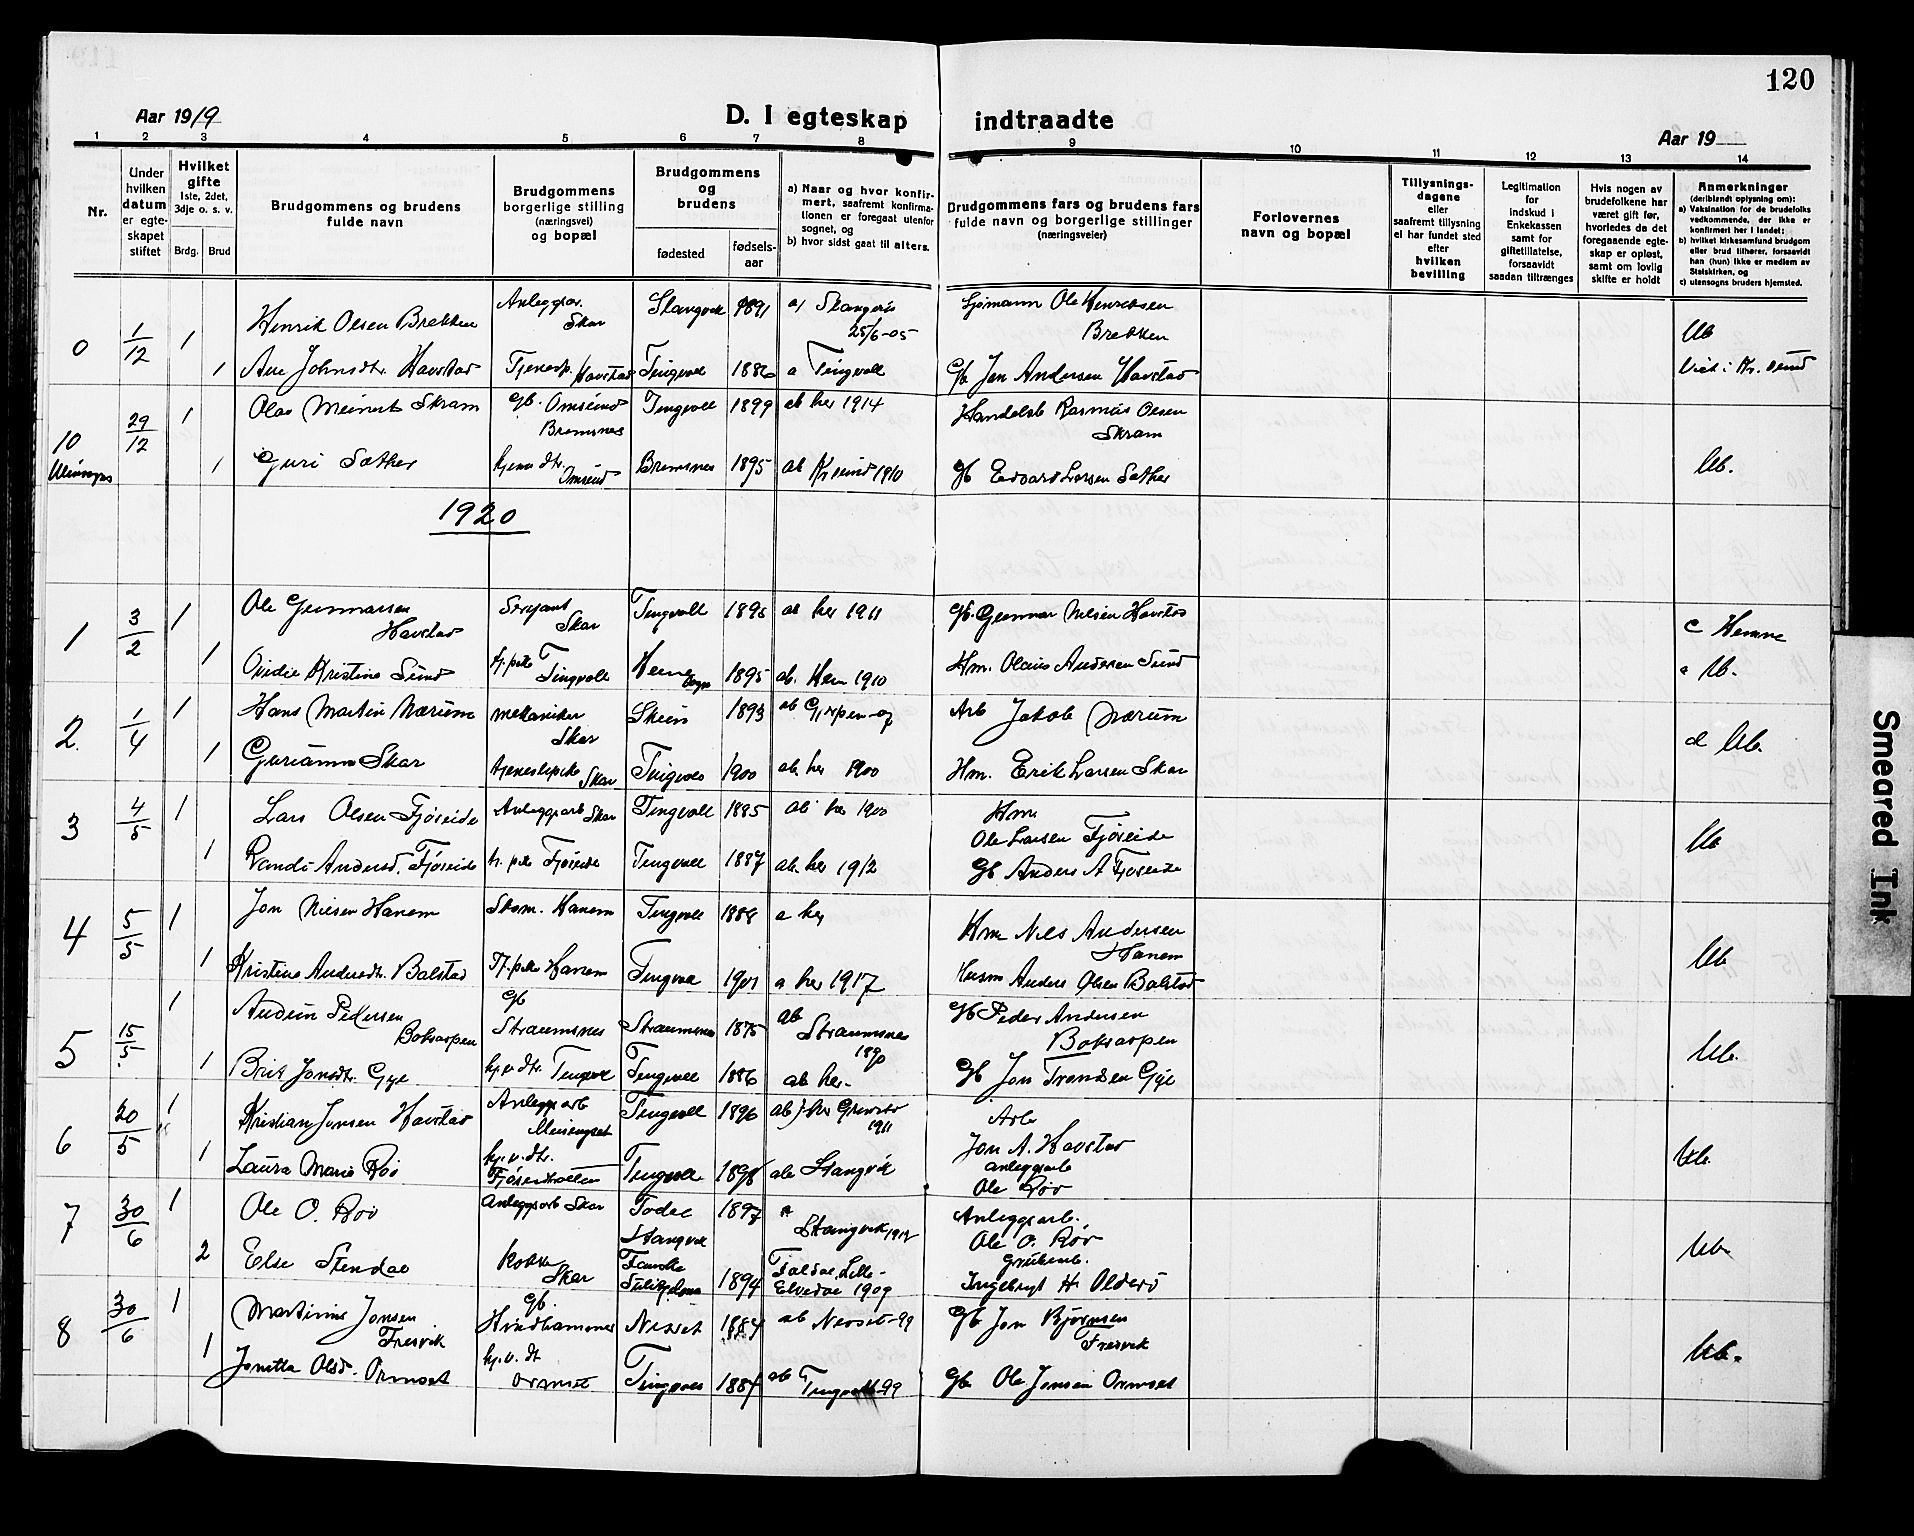 120
Aar 1919
D. I egteskap indtraadte
Aar 19
1 2 3 4 5 6 7 8 9 10 11 12 13 14
Nr.
Under hvilken datum er egteskapet stiftet
Hvilket gifte 1ste, 2det, 3dje o. s. v.
Brdg. Brud
Brudgommens og brudens fulde navn
Brudgommens borgerlige stilling (næringsvei) og bopæl
Brudgommens og brudens
fødested
fødselsaar
a) Naar og hvor konfirmert, saafremt konfirmationen er foregaat utenfor sognet, og
b) hvor sidst gaat til alters.
Brudgommens fars og brudens fars fulde navn og borgerlige stillinger (næringsveier)
Forlovernes navn og bopæl
Tillysningsdagene eller saafremt tillysning ei har fundet sted efter hvilken bevilling
Legitimation for indskud i Enkekassen samt for giftetillatelse, forsaavidt saadan tiltrænges
Hvis nogen av brudefolkene har været gift før, hvorledes da det foregaaende egteskap er opløst, samt om lovlig skifte er holdt
Anmerkninger (deriblandt oplysning om):
a) Vaksination for de brudefolks vedkommende, der ikke er konfirmert her i landet;
b) hvilket kirkesamfund brudgom eller brud tilhører, forsaavidt han (hun) ikke er medlem av Statskirken, og
c) utensogns bruders hjemsted.
0 1/12 1 Henrik Olsen Brekken Anleggsar. Skar Stangvik 1891 a) Stangvik 25/6-05 Sjømann Ole Henriksen Brekken Ub
1 Ane Johnsdtr. Havstad Tjenesp. Havstad Tingvoll 1886 a Tingvoll Gb Jon Andersen Havstad Viet i Kr. sund
10 29/12 1 Olas Meinert Skram Gb. Omsund Bremsnes Tingvoll 1899 ab her 1914 Handelsb Rasmus Olsen Skram
1 Guri Sæther hjem dtr. Omsund Bremsnes 1895 ab Kr sund 1910 Gb Edvard Larsen Sæther Ub.
1920
1 3/2 1 Ole Gunnarsen Havstad Serjant Skar Tingvoll 1895 ab her 1911 Gb. Gunnar Nilsen Havstad c Hemne
1 Ovidie Kristine Sund tj. pike Tingvoll Hemne sogn 1895 ab. Hem 1910 Hm. Olaus Andersen Sund a Ub.
2. 1/4 1 Hans Martin Nærum mekaniker Skar Skien 1893 ab Gjerpen-07 Arb Jakob Nærum
1 Gurianna Skar tjenestepike Skar Tingvoll 1900 ab. her 1900 Hm. Erik Larsen Skar Ub.
3 4/5 1 Lars Olsen Fjøseide Anleggsarb Skar Tingvoll 1885 ab her 1900 Hm. Ole Larsen Fjøseide Ub
1 Randi Andersd. Fjøseide tj. pike Fjøseide Tingvoll 1887 ab. her 1912 Gb Anders A Fjøseide
4 5/5 1 Jon Nilsen Hanem Skom. Hanem Tingvoll 1888 a her Hm Nils Andersen Hanem
1 Kristine Andersdtr. Balstad Tj. pike Hanem Tingvoll 1901 a her 1917 Husm Anders Olsen Balstad Ub
5 15/5. 1 Audun Pedersen Boksaspen Gb Straumsnes Straumsnes 1875 ab Straumsnes 1890 Gb Peder Andersen Boksaspen
1 Brit Jonsdtr. Gyl hj. v. dtr. Tingvoll Tingvoll 1886 ab her- Gb Jon Trondsen Gyl Ub.
6 20/5 1 Kristian Jonsen Havstad Anleggsarb Meisingset Tingvoll 1896 Arb Jon A. Havstad
1 Laura Marie Røv hj. v. dtr. Tingvoll 1898 ab Stangvik anleggsarb Ole Røv Ub.
7 30/6 1 Ole O. Røv anleggsarb Skar Todal Stangvik 1897 a Stangvik 1912 Anleggsarb. Ole O. Røv
2 Else Stendal kokke Skar Fauske 1894 Grubearb. Ingebrigt H. Olderø Ub
8 30/6 1 Martinus Jonsen Fresvik Gb. Hindhammer Nesset 1884 ab Nesset-99 Gb Jon Bjørnsen Fresvik
1 Jonetta Olsd. Ormset hj. v. dt Ormset Tingvoll 1884 ab Tingvoll-99 Gb Ole Jonsen Ormset Ub.
Smeared Ink